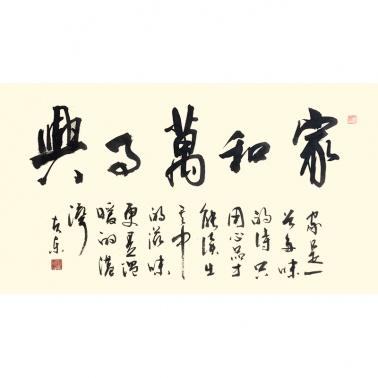 家和萬事興
家是一
首多味
的诗只
用心品才
能读出
其中
的滋味
更是温
暖的港
湾